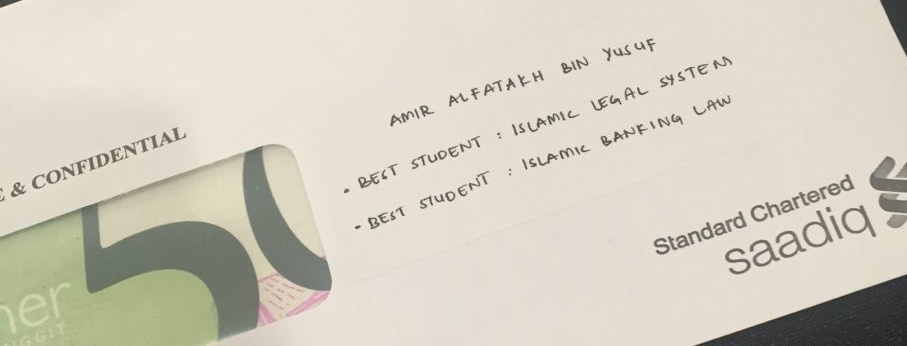 AMIR ALFATAKH BIN YUSUF
• BEST STUDENT : ISLAMIC LEGAL SYSTEM
• BEST STUDENT : ISLAMIC BANKING LAW
& CONFIDENTIAL
50
Standard Chartered
saadiq